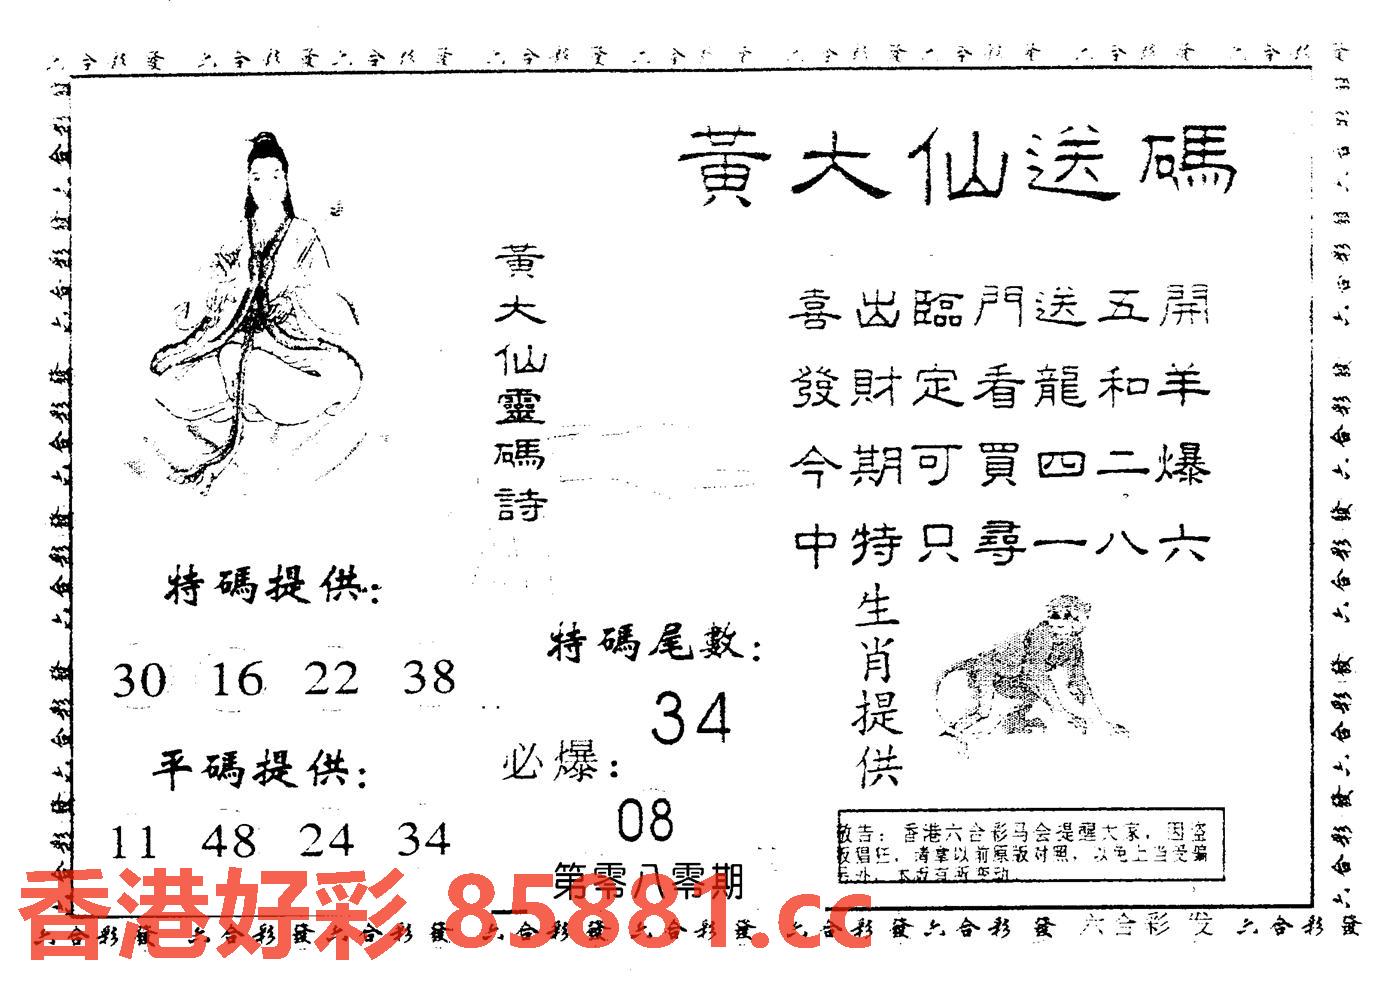 六合彩發 六合彩發 六合彩發 六合彩發 六合彩發 六合彩發 六合彩發 六合彩發 六合彩發
黃大仙送碼
黃大仙靈碼詩
喜出臨門送五開
發財定看龍和羊
今期可買四二爆
中特只尋一八六
特碼提供：
30 16 22 38
平碼提供：
11 48 24 34
特碼尾數：
34
必爆：
08
第零八零期
生肖提供
敬告：香港六合彩马会提醒大家，因盗
版猖狂，请拿以前原版对照，以免上当受骗
另外，本版有所变动
香港好彩 85881.cc
六合彩發 六合彩發 六合彩發 六合彩發 六合彩發 六合彩發 六合彩發 六合彩发 六合彩發